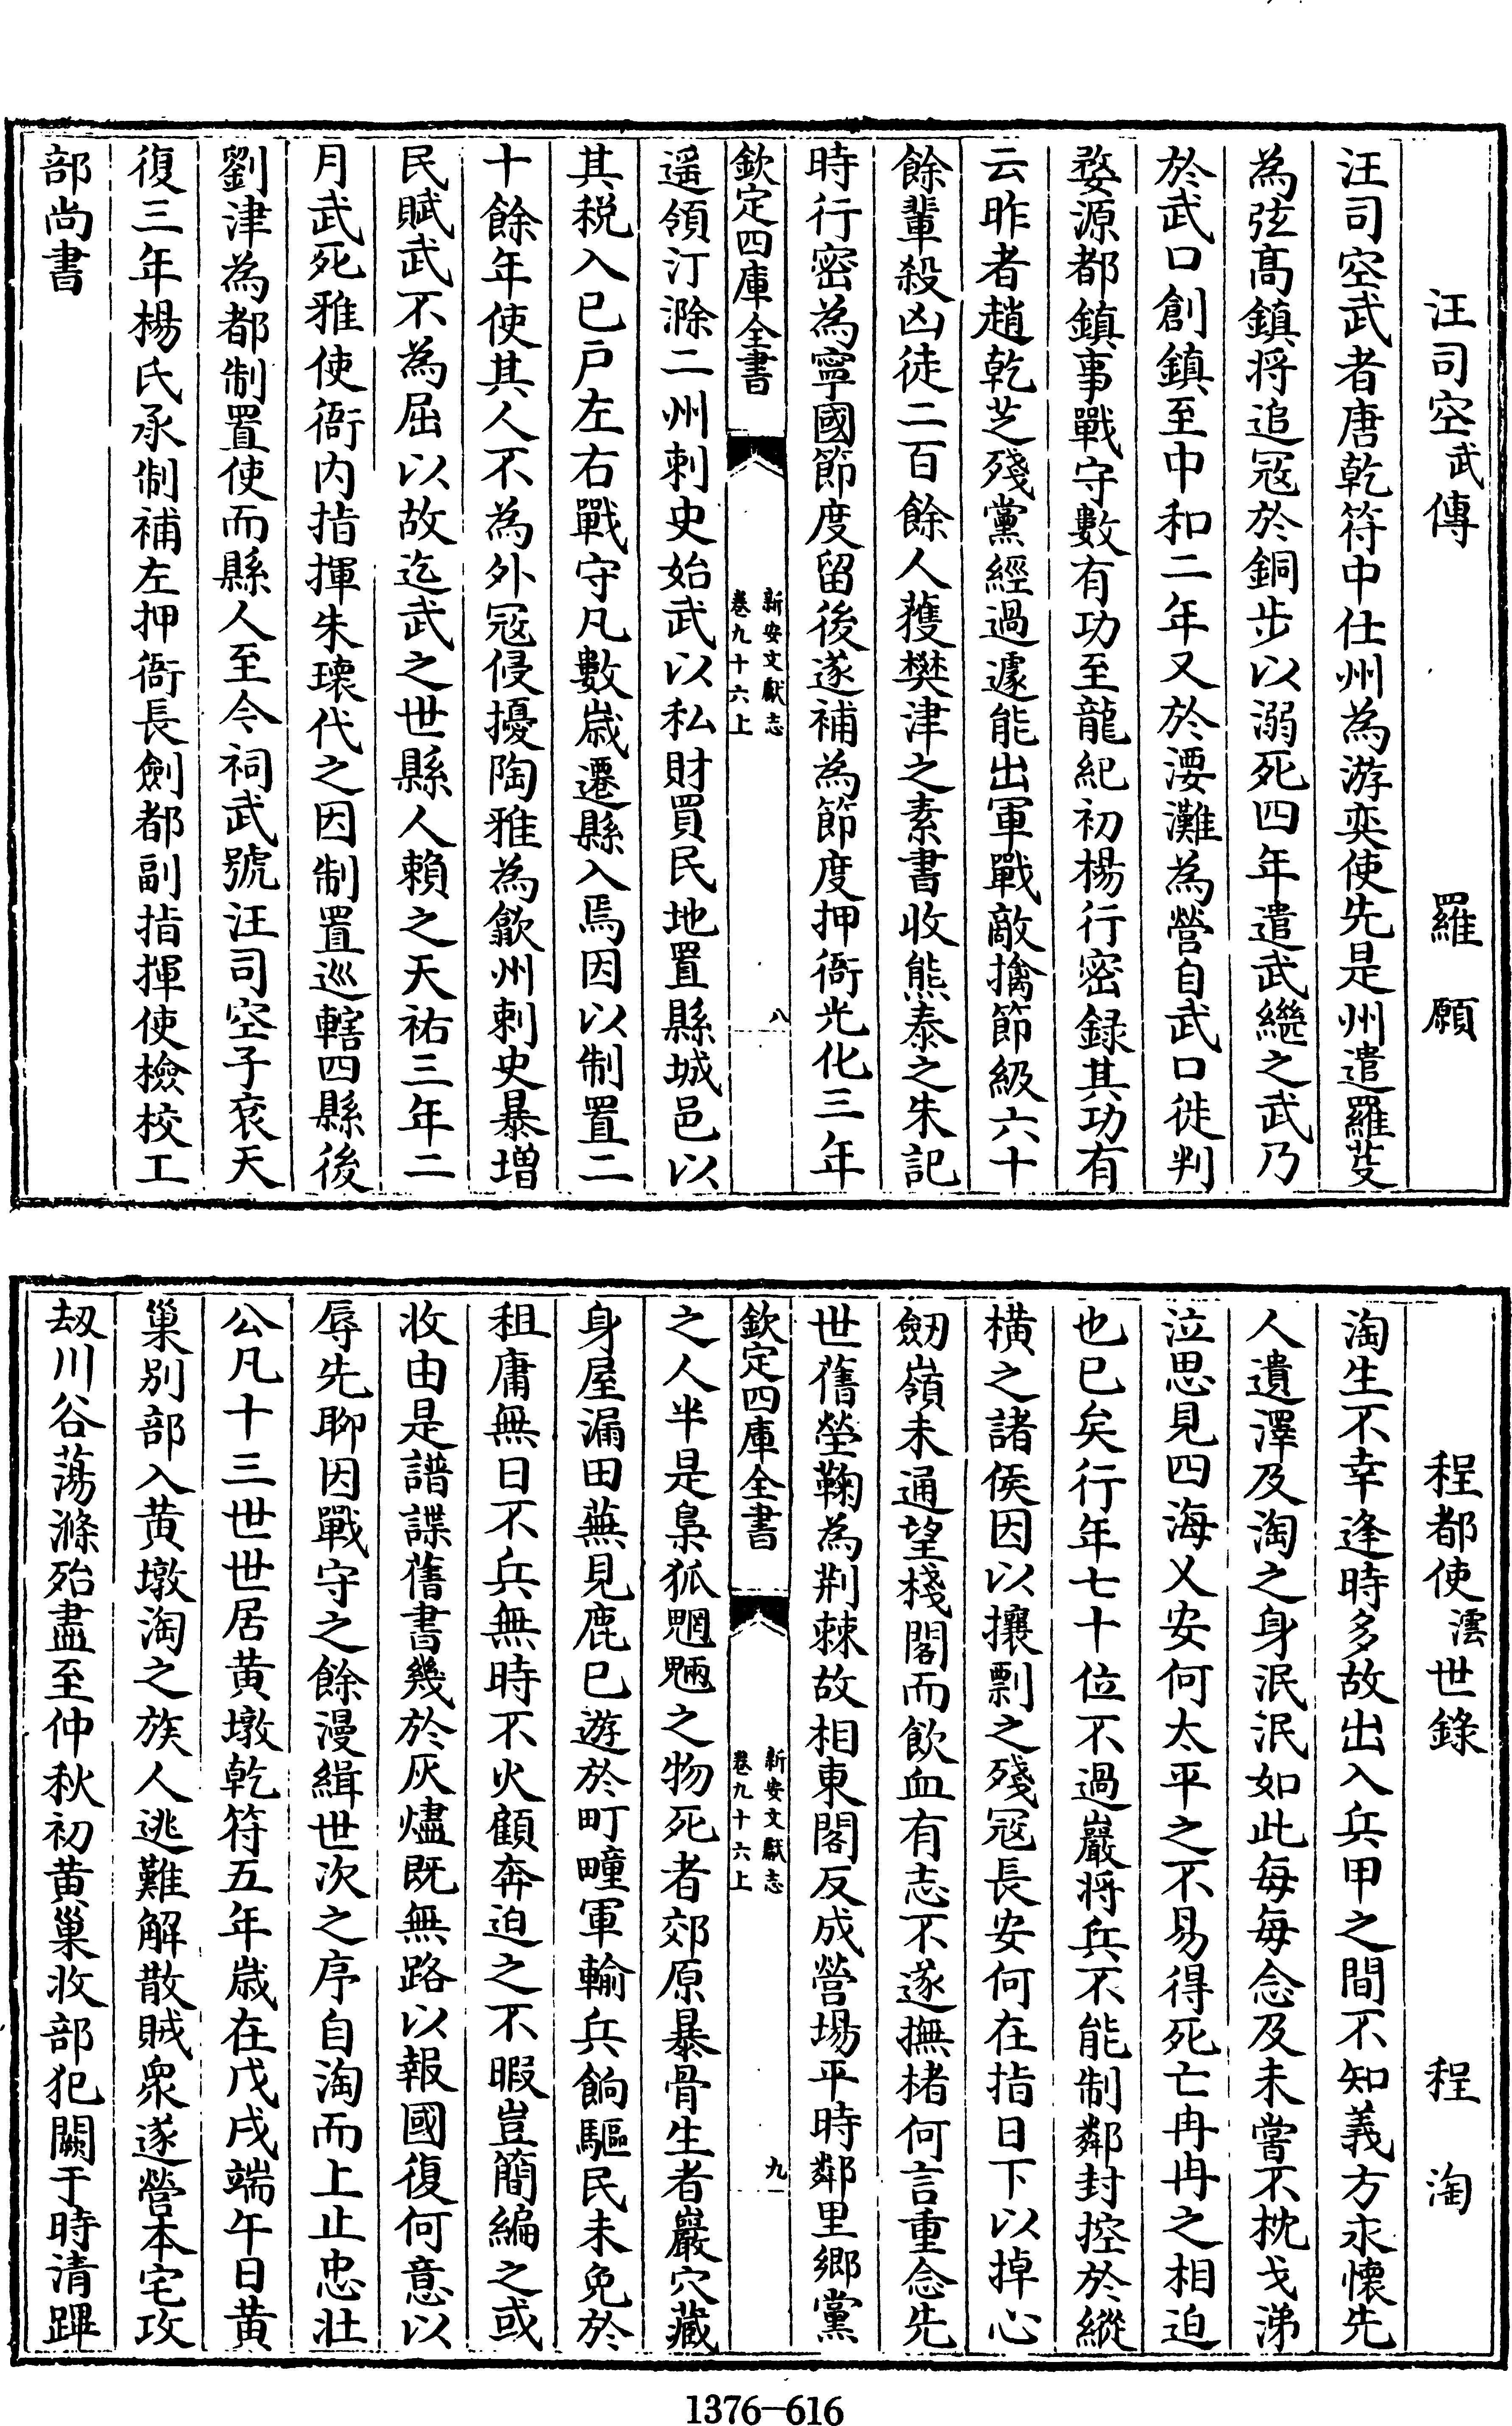 汪司空武傳　羅　願
汪司空武者唐乾符中仕州為游奕使先是州遣羅芟
為弦髙鎮将追冦於銅步以溺死四年遣武繼之武乃
於武口創鎮至中和二年又於㴩灘為營自武口徙判
婺源都鎮事戰守數有功至龍紀初楊行密録其功有
云昨者趙乾芝殘黨經過遽能出軍戰敵擒節級六十
餘輩殺凶徒二百餘人獲樊津之素書收熊泰之朱記
時行密為寧國節度留後遂補為節度押衙光化三年
欽定四庫全書
新安文獻志
卷九十六上
八
遥領汀滁二州刺史始武以私財買民地置縣城邑以
其税入已户左右戰守凡數嵗遷縣入焉因以制置二
十餘年使其人不為外冦侵擾陶雅為歙州刺史暴増
民賦武不為屈以故迄武之世縣人賴之天祐三年二
月武死雅使衙内指揮朱瓌代之因制置巡轄四縣後
劉津為都制置使而縣人至今祠武號汪司空子衮天
復三年楊氏承制補左押衙長劍都副指揮使檢校工
部尚書
程都使澐世錄　程　淘
淘生不幸逢時多故出入兵甲之間不知義方永懷先
人遺澤及淘之身泯泯如此每每念及未嘗不枕戈涕
泣思見四海乂安何太平之不易得死亡冉冉之相迫
也已矣行年七十位不過巖将兵不能制鄰封控於縱
橫之諸侯因以攘剽之殘冦長安何在指日下以掉心
劒嶺未通望棧閣而飲血有志不遂撫楮何言重念先
世舊塋鞠為荆棘故相東閣反成營場平時鄰里鄉黨
欽定四庫全書
新安文獻志
卷九十六上
九
之人半是梟狐魍魎之物死者郊原暴骨生者巖穴藏
身屋漏田蕪見鹿已遊於町畽軍輸兵餉驅民未免於
租庸無日不兵無時不火顧奔迫之不暇豈簡編之或
收由是譜諜舊書幾於灰燼既無路以報國復何意以
辱先聊因戰守之餘漫緝世次之序自淘而上止忠壯
公凡十三世世居黄墩乾符五年嵗在戊戌端午日黄
巢別部入黄墩淘之族人逃難解散賊衆遂營本宅攻
刼川谷蕩滌殆盡至仲秋初黄巢收部犯闕于時清蹕
1376-616